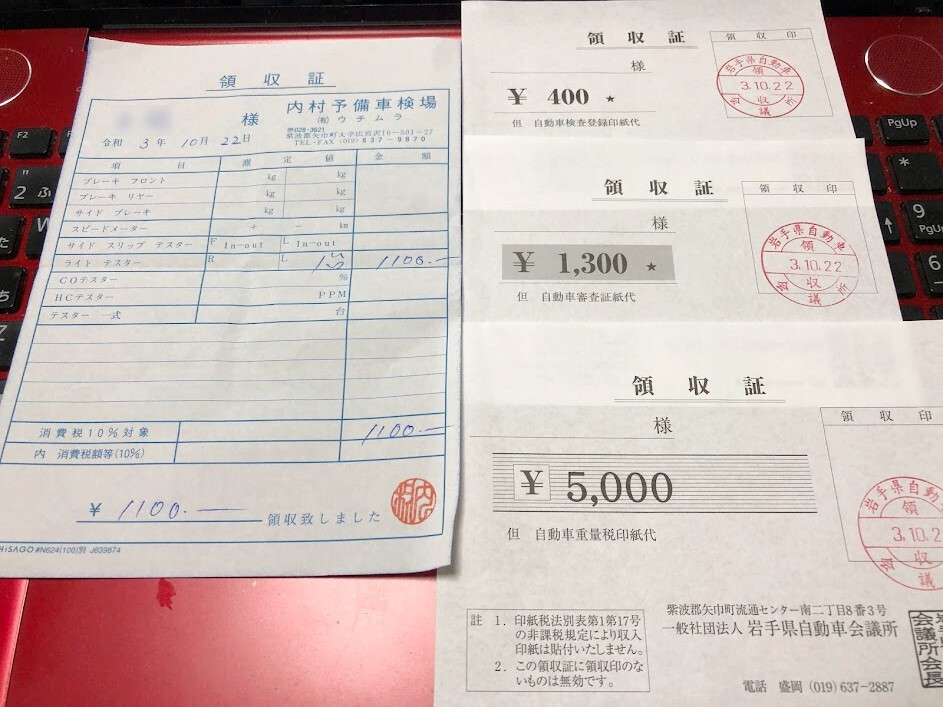 領収証
様
内村予備車検場
(有)ウチムラ
〒028-3621
紫波郡矢巾町大字広宮沢10-501-27
TEL・FAX (019) 637-9870
令和 3年 10月 22日
項目 測定値 金額
ブレーキ フロント kg kg
ブレーキ リヤー kg kg
サイド ブレーキ kg kg
スピードメーター + - km
サイド スリップ テスター F In-out L In-out
ライト テスター R L 1100.-
COテスター %
HCテスター PPM
テスター 一式 台
消費税10%対象 1100.-
内 消費税額等(10%)
¥ 1100.- 領収致しました
HiSAGO #N624(100)別 J639874
領収証
領収印
様
¥ 400 ★
但 自動車検査登録印紙代
岩手県自動車
領
3.10.22
収
会議所
領収証
領収印
様
¥ 1,300 ★
但 自動車審査証紙代
岩手県自動車
領
3.10.22
収
会議所
領収証
領収印
様
¥ 5,000
但 自動車重量税印紙代
岩手県自動
領
3.10.2
収
会議
註 1. 印紙税法別表第1第17号
の非課税規定により収入
印紙は貼付いたしません。
2. この領収証に領収印のな
いものは無効です。
紫波郡矢巾町流通センター南二丁目8番3号
一般社団法人 岩手県自動車会議所
電話 盛岡 (019) 637-2887
会議所会長
F2
F3
PgUp
2 ふ
W
9
PgUp
6